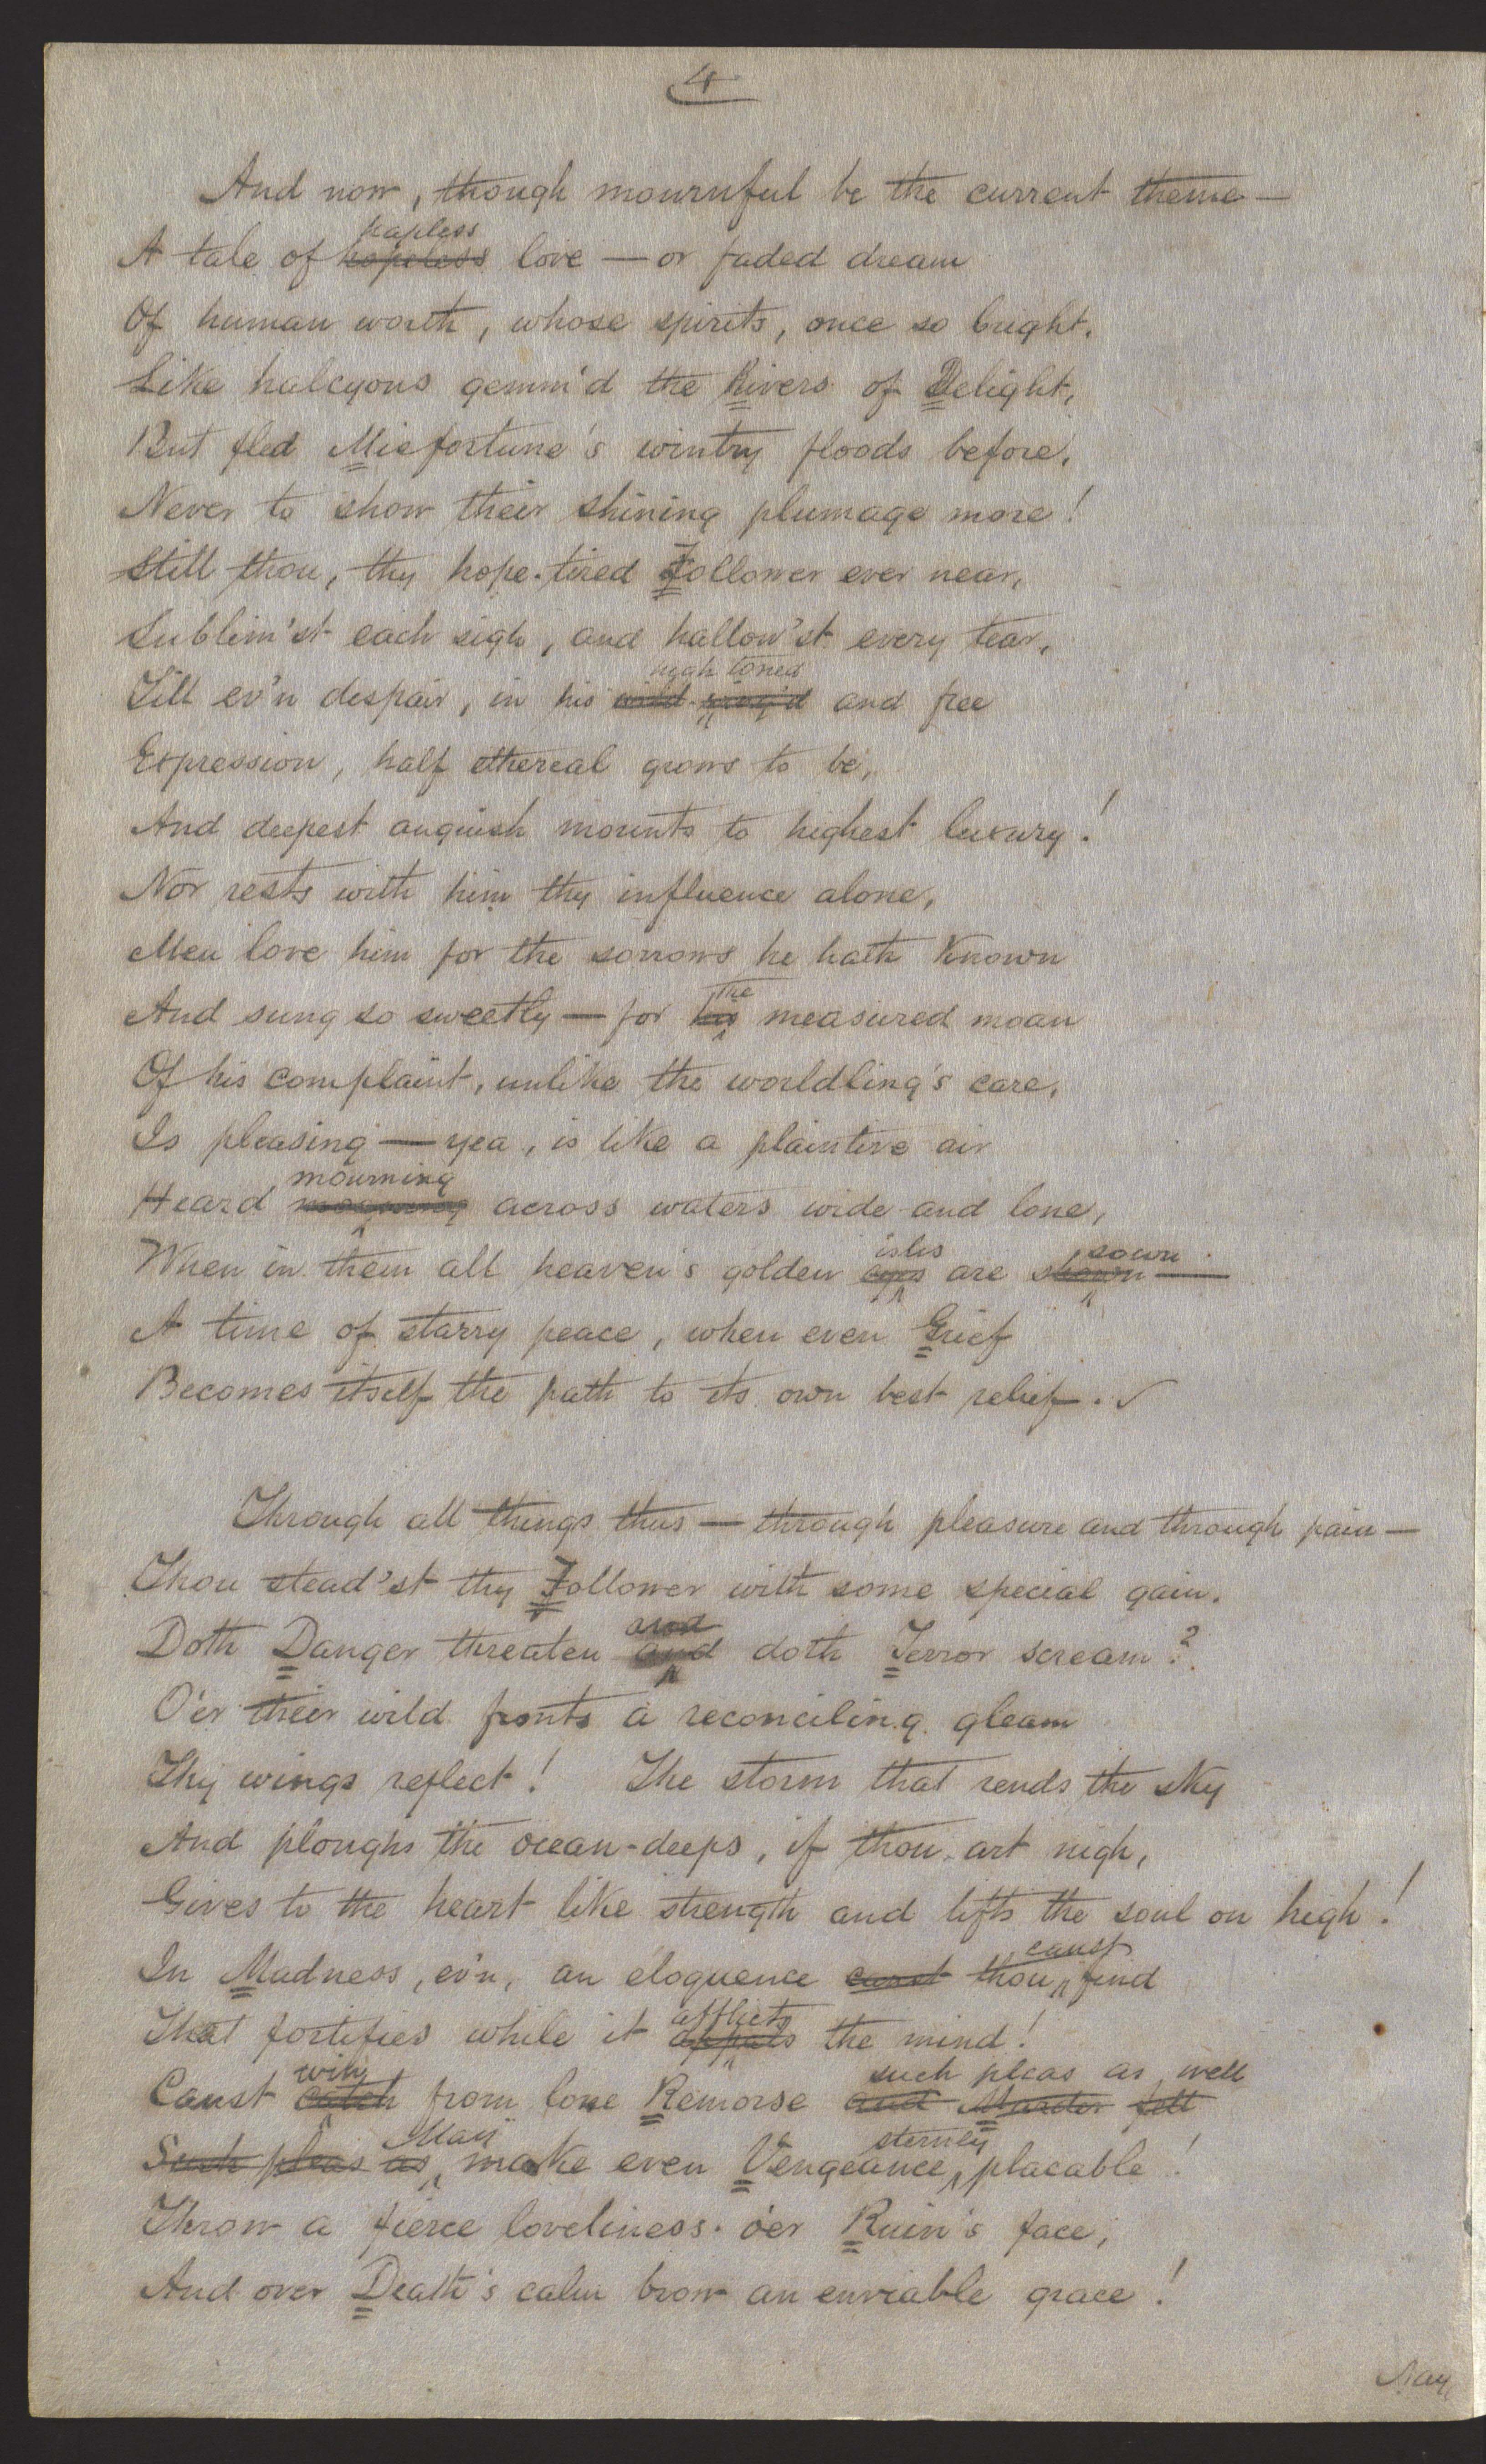 4
And now, though mournful be the current theme —
hapless
A tale of hopeless love — or faded dream
Of human worth, whose spirits, once so bright,
Like halcyons gemm'd the Rivers of Delight,
But fled Misfortune's wintry floods before,
Never to show their shining plumage more!
Still thou, thy hope-tired Follower ever near,
Sublim'st each sigh, and hallow'st every tear,
high toned
Till ev'n despair, in his wild and free
Expression, half ethereal grows to be,
And deepest anguish mounts to highest luxury!
Nor rests with him thy influence alone,
Men love him for the sorrows he hath known
the
And sung so sweetly — for his measured moan
Of his complaint, unlike the worldling's care,
Is pleasing — yea, is like a plaintive air
mourning
Heard across waters wide and lone,
isles sown
When in them all heaven's golden eyes are shown —
A time of starry peace, when even Grief
Becomes itself the path to its own best relief. ✓
Through all things thus — through pleasure and through pain —
Thou stead'st thy Follower with some special gain.
and
Doth Danger threaten and doth Terror scream?
O'er their wild fronts a reconciling gleam
Thy wings reflect! The storm that rends the sky
And ploughs the ocean-deeps, if thou art nigh,
Gives to the heart like strength and lifts the soul on high!
canst
In Madness, ev'n, an eloquence canst thou find
afflicts
That fortifies while it appals the mind!
win such pleas as well
Canst catch from lone Remorse and Murder fell
May sternly
Such pleas as make even Vengeance placable!
Throw a fierce loveliness o'er Ruin's face,
And over Death's calm brow an enviable grace!
Nay